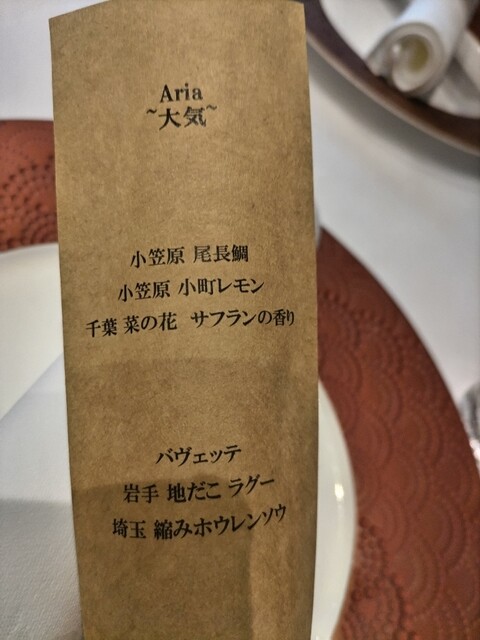 Aria
~大気~
小笠原 尾長鯛
小笠原 小町レモン
千葉 菜の花 サフランの香り
バヴェッテ
岩手 地だこ ラグー
埼玉 縮みホウレンソウ